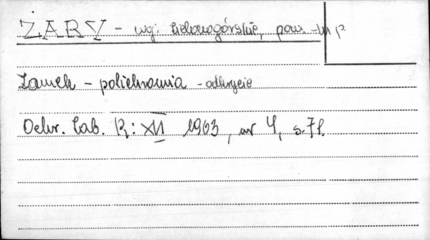 ŻARY - woj. zielonogórskie, pow. - " -
Zamek - polichromia - odkrycie
Ochr. Zab. R: XVI 1963, nr 4, s. 71.